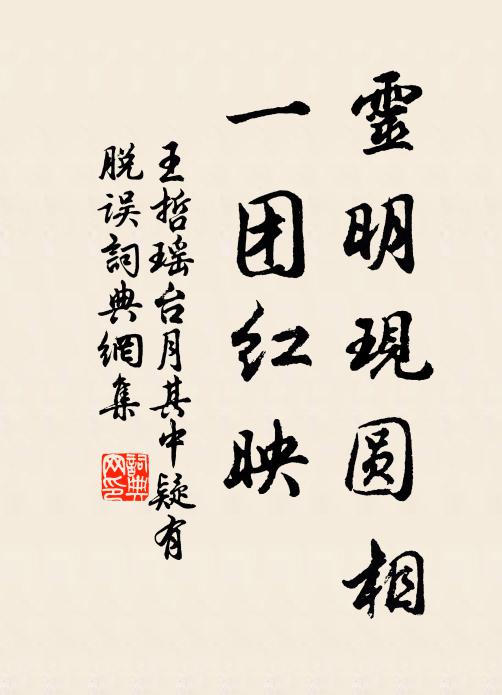 靈明現圆相
一团红映
王哲瑶台月其中疑有
脱误詞典網集
詞典
网印